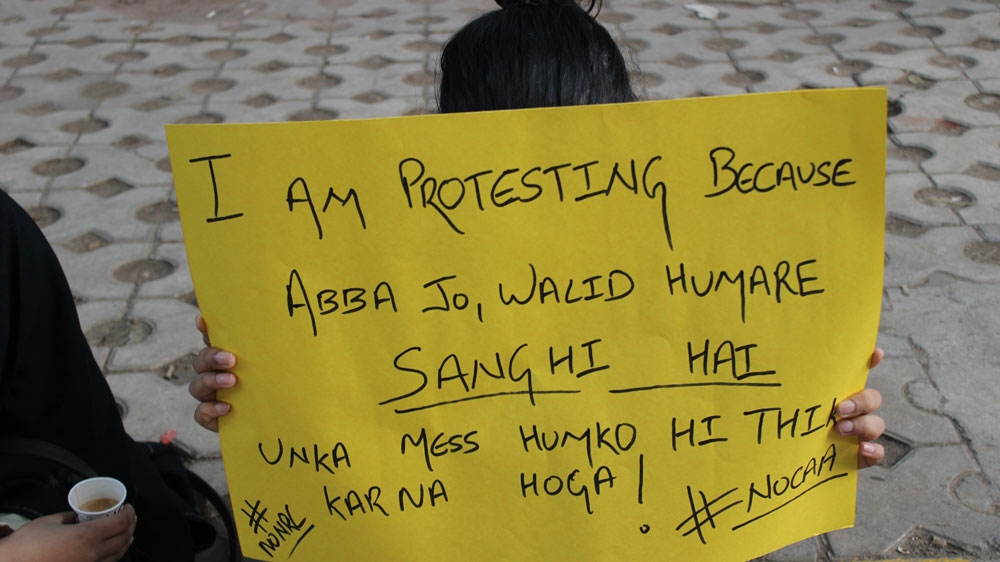 I AM PROTESTING BECAUSE
ABBA JO, WALID HUMARE
SANGHI HAI
UNKA MESS HUMKO HI THIK
KARNA HOGA!
#NONRC
#NOCAA